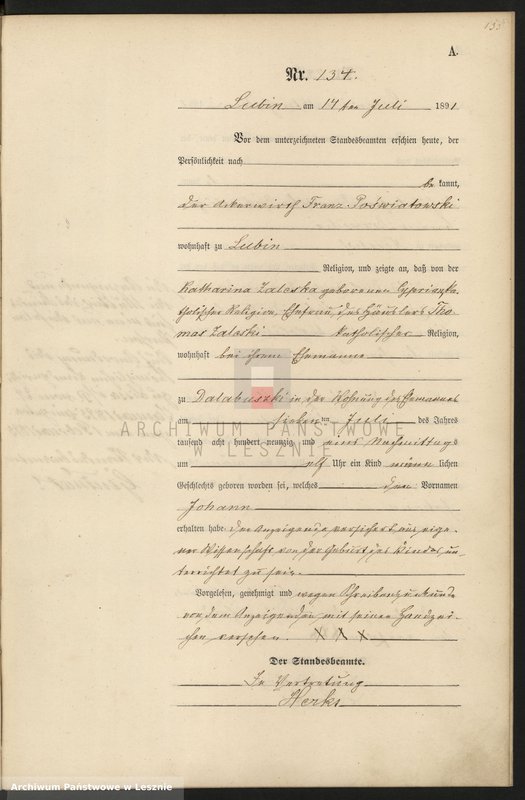 A.
Nr. 134.
Lubin am 14ten Juli 1891
Vor dem unterzeichneten Standesbeamten erschien heute, der
Persönlichkeit nach
be kannt,
der Ackerwirth Franz Poświatowski
wohnhaft zu Lubin
Religion, und zeigte an, daß von der
Katharina Zaleska geborenen ka-
tholischer Religion, Ehefrau des Häuslers Tho-
mas Zaleski katholischer Religion,
wohnhaft bei ihrem Ehemanne
zu Dalabuszki in der Wohnung des Ehemannes
am sieben ten Juli des Jahres
tausend acht hundert neunzig und eins Nachmittags
um elf Uhr ein Kind männ lichen
Geschlechts geboren worden sei, welches den Vornamen
Johann
erhalten habe der Anzeigende versichert aus eige-
ner Wissenschaft von der Geburt des Kindes un-
terrichtet zu sein.
Vorgelesen, genehmigt und wegen Schreibensunkunde
von dem Anzeigenden mit seinen Handzei-
chen versehen. X X X
Der Standesbeamte.
In Vertretung
Herks
ARCHIWUM PAŃSTWOWE
W LESZNIE
Archiwum Państwowe w Lesznie